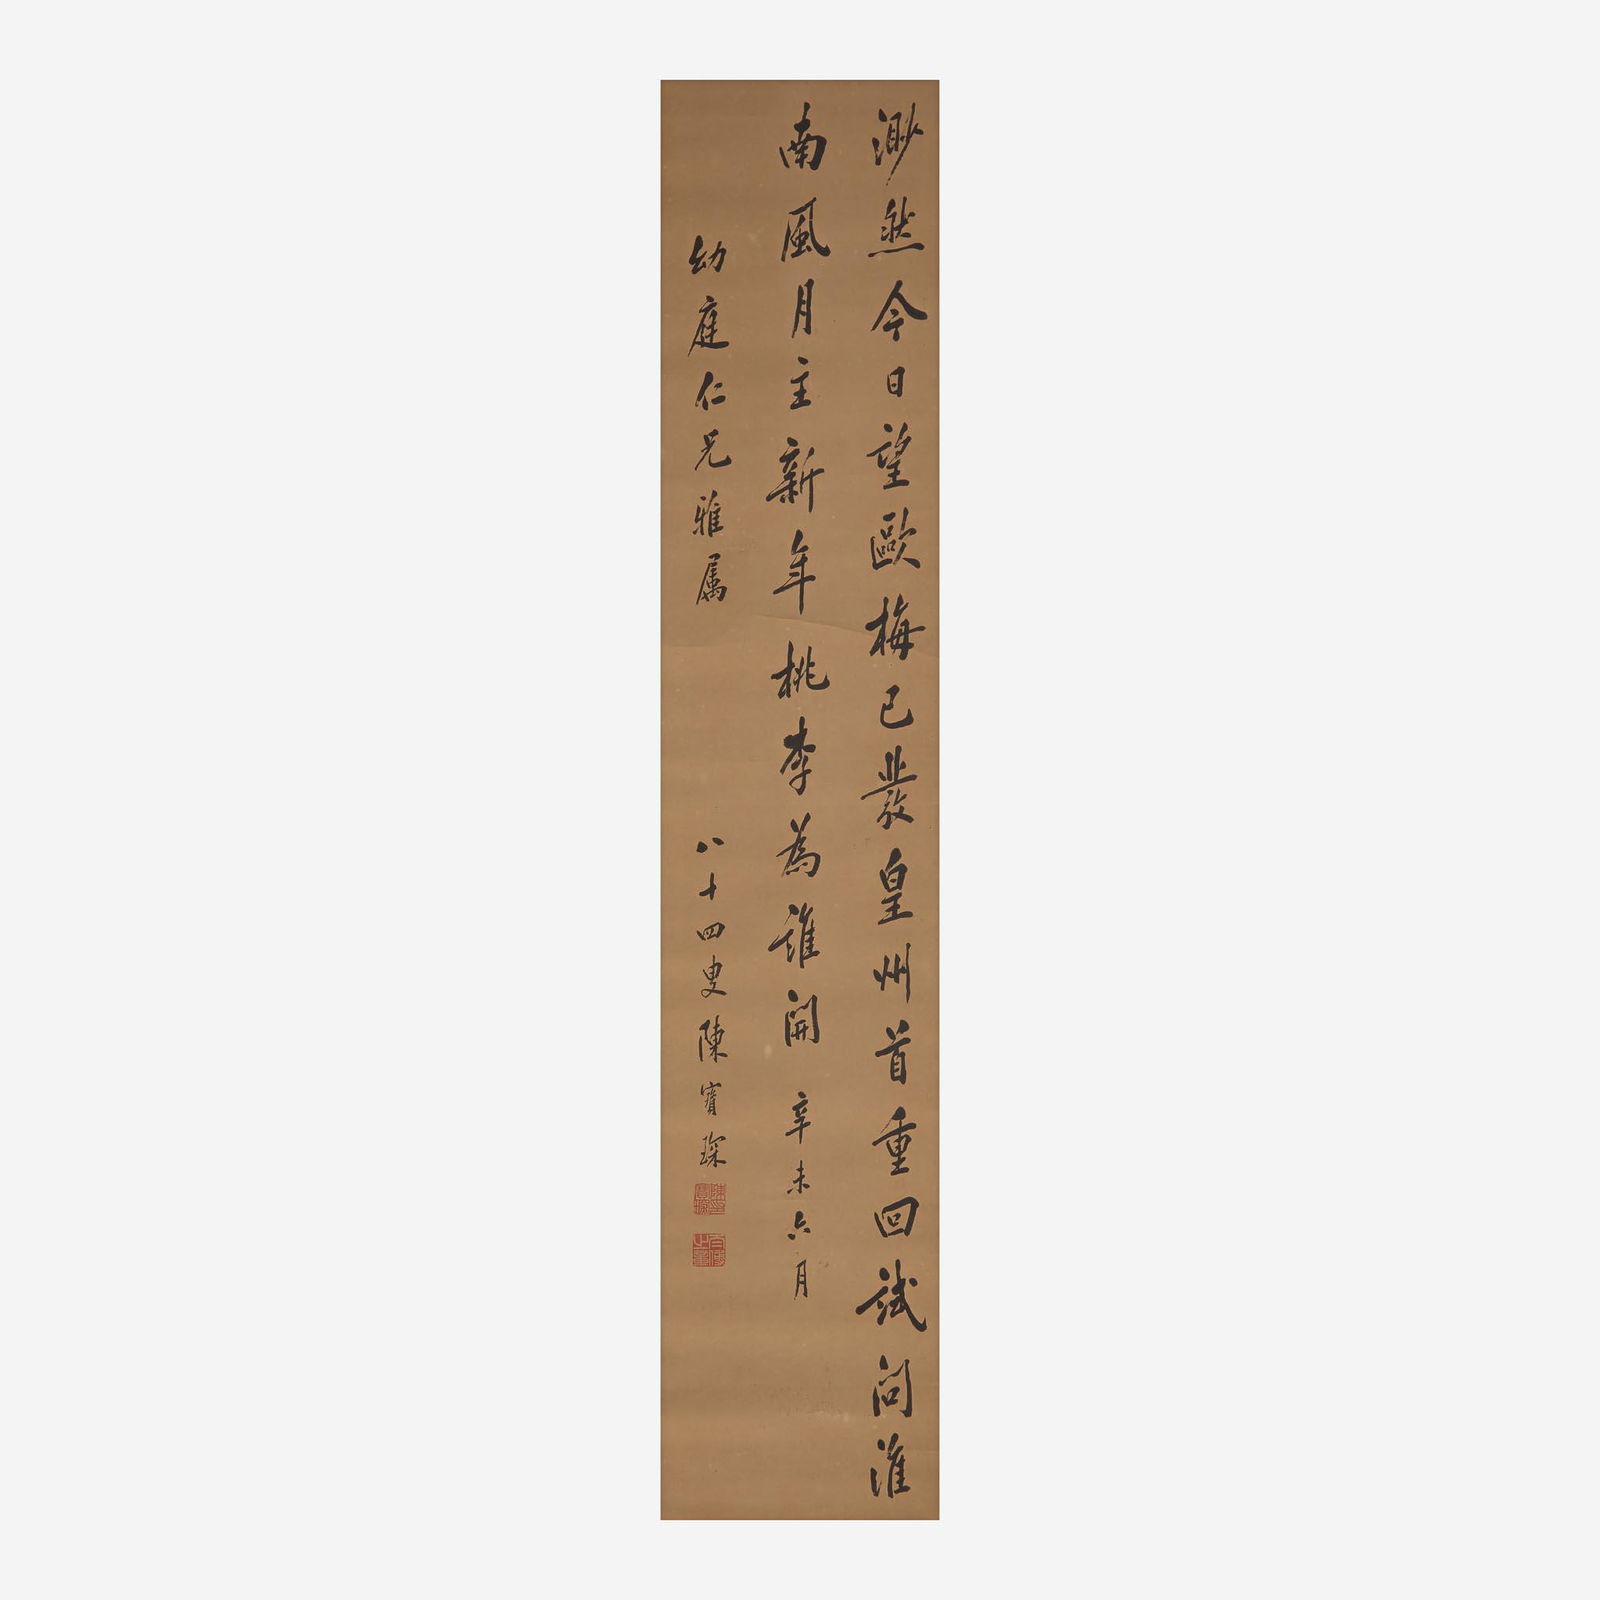 渺然今日望歐梅已發皇州首重回試問淮
南風月主新年桃李為誰開 辛未六月
幼庭仁兄雅屬 八十四叟陳寶琛
陳寶琛印